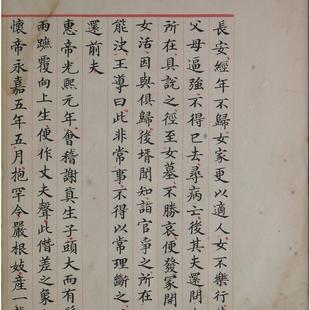 長安經年不歸女家更以適人女不樂行
父母逼強不得已去尋病亡後其夫還問
所在具說之徑至女墓不勝哀便發冢開
女活因與俱歸後壻聞知詣官爭之所在
能決王導曰此非常事不得以常理斷之
還前夫
惠帝光熙元年會稽謝真生子頭大而有
兩蹠覆向上生便作丈夫聲此僭差之象
懷帝永嘉五年五月抱罕令嚴根妓產一